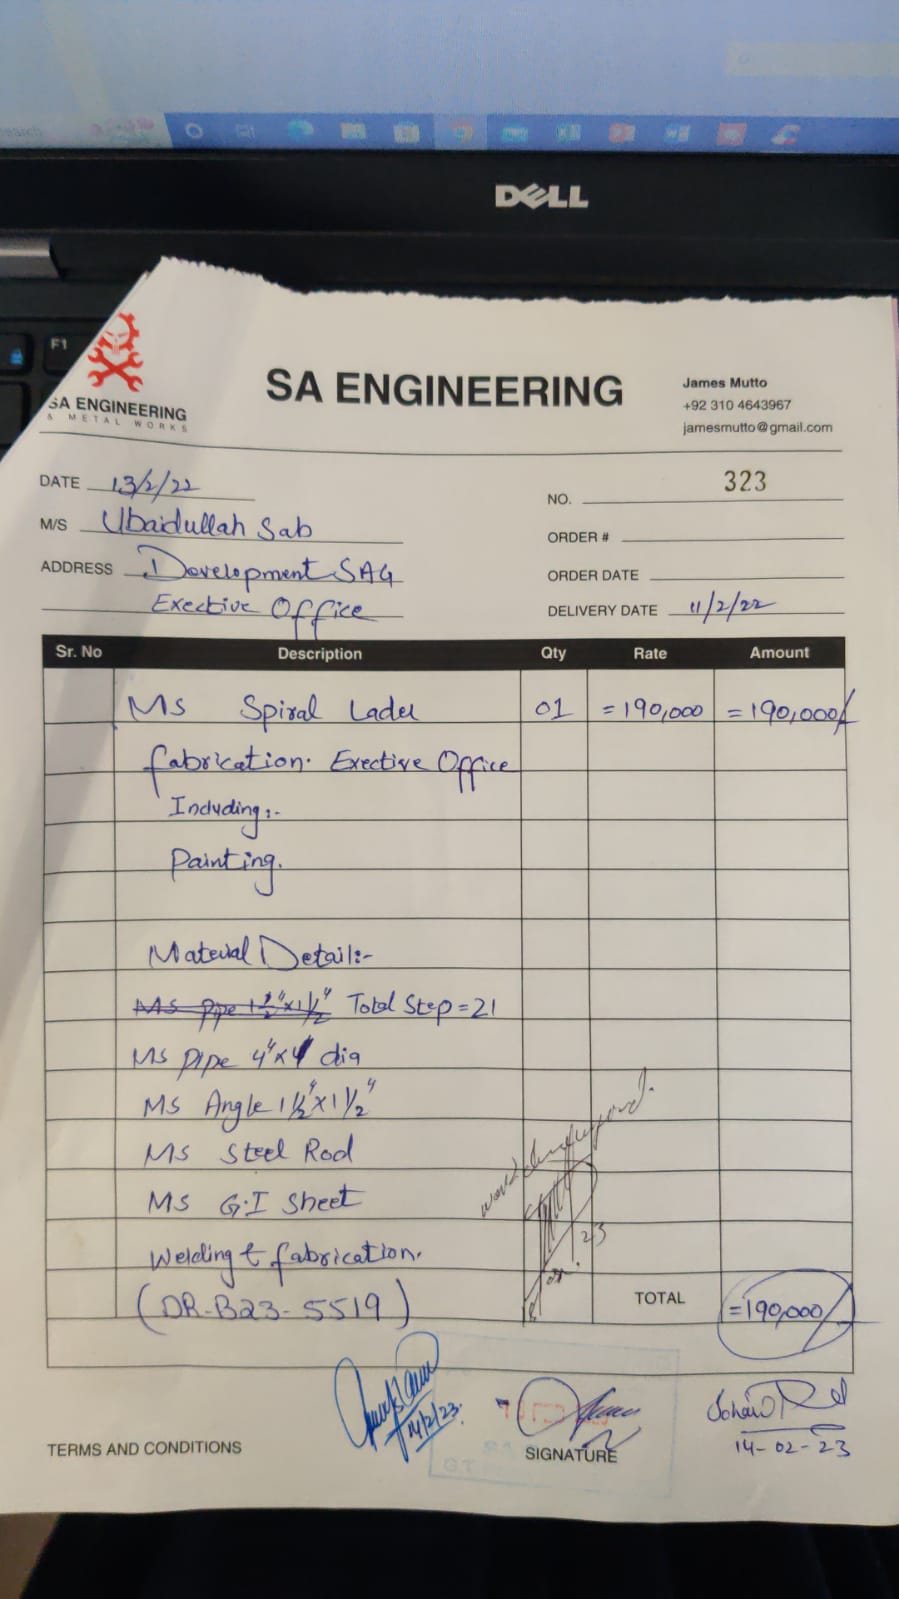 search
DELL
F1
SA ENGINEERING
& METAL WORKS
SA ENGINEERING
James Mutto
+92 310 4643967
jamesmutto@gmail.com
DATE 13/2/22
NO. 323
M/S Ubaidullah Sab
ORDER #
ADDRESS Development SAG
ORDER DATE
Exective Office
DELIVERY DATE 11/2/22
Sr. No Description Qty Rate Amount
MS Spiral Lader 01 =190,000 =190,000/
fabrication. Exective Office
Including:-
Painting.
Material Detail:-
MS Pipe 1½"x1½" Total Step=21
MS Pipe 4"x4" dia
MS Angle 1½"x1½"
MS Steel Rod
MS G.I Sheet
Welding & fabrication.
(DR-B23-5519)
TOTAL =190,000/
14/2/23.
14-02-23
TERMS AND CONDITIONS
SIGNATURE